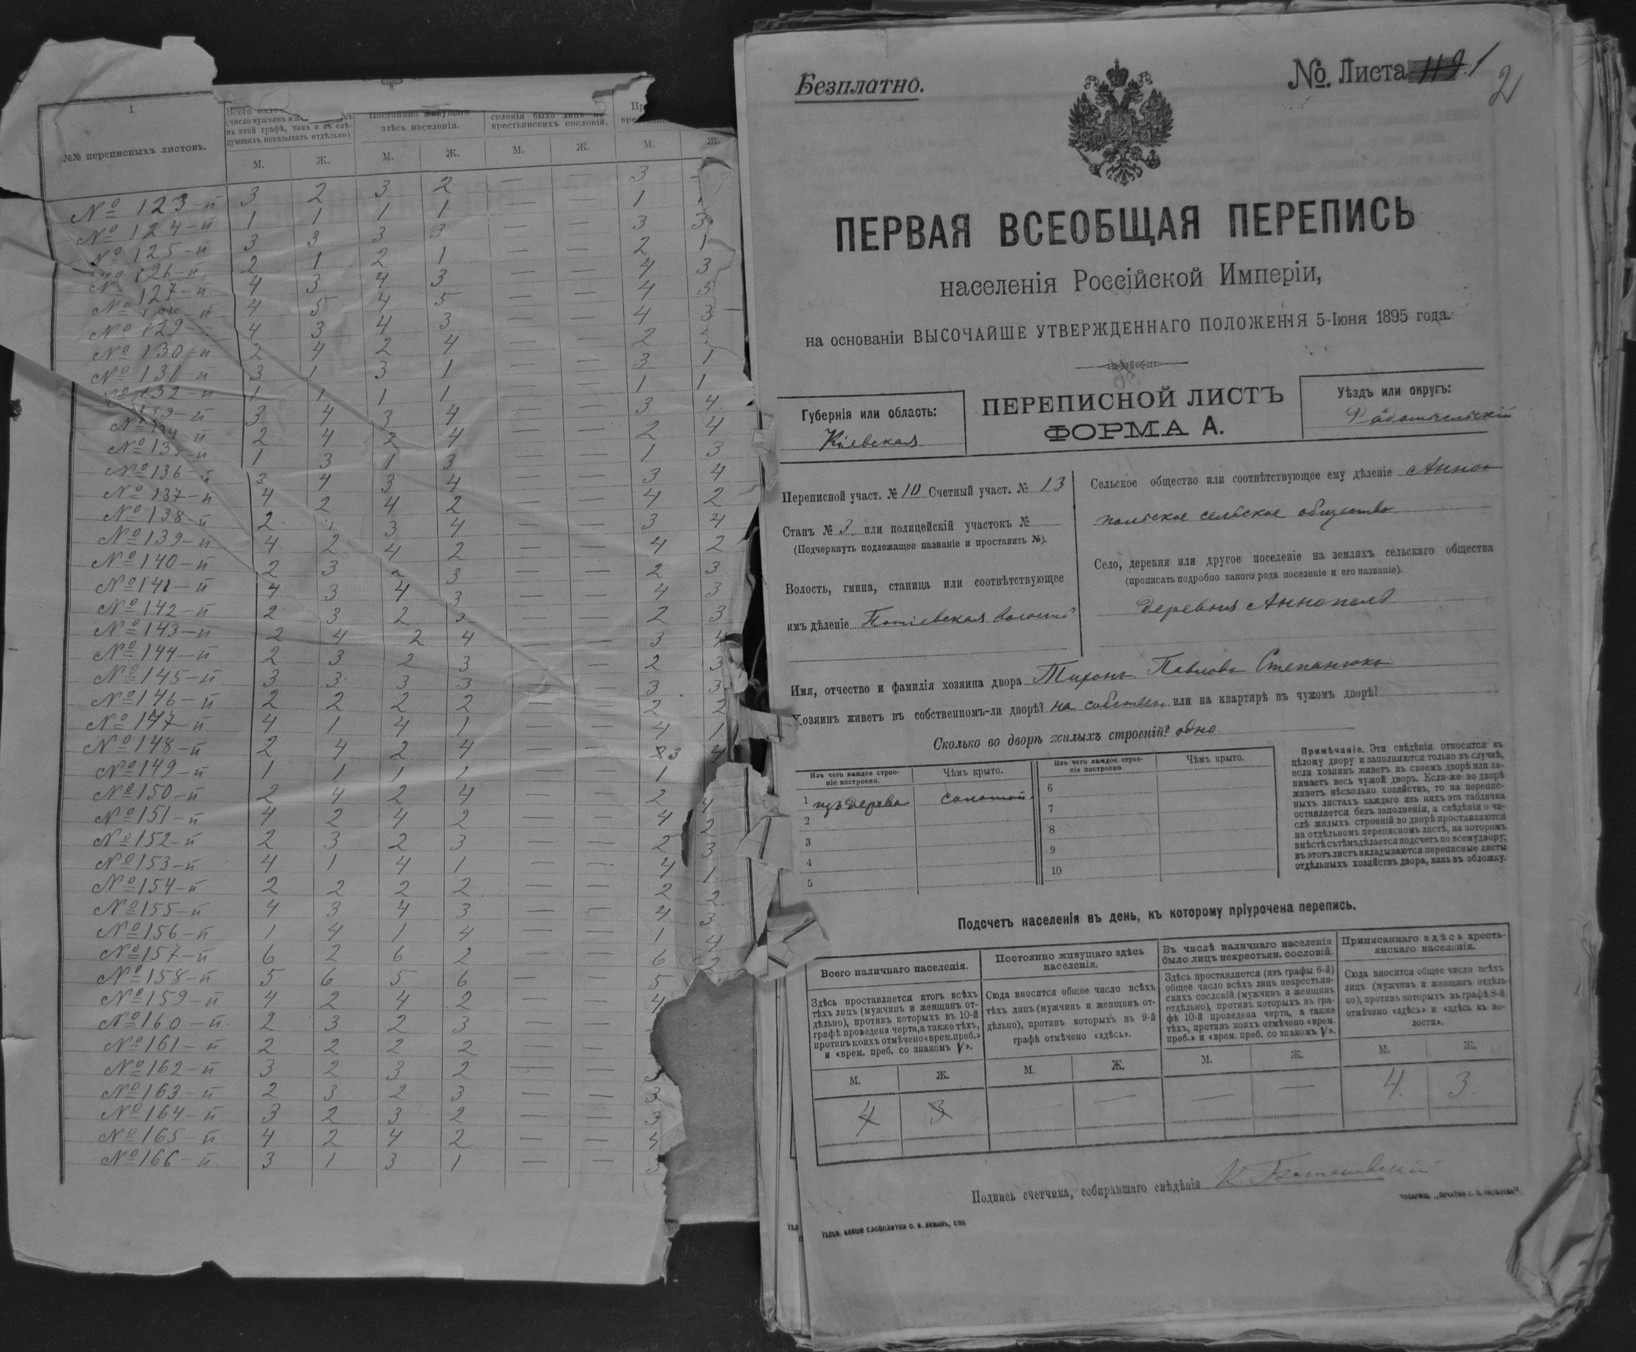 1
№№ переписныхъ листовъ.
въ этой графѣ, такъ и въ слѣ-
дующихъ показывать отдѣльно)
Постоянно живущаго
здѣсь населенія.
селенія было лицъ не-
крестьянскихъ сословій.
М. Ж. М. Ж. М. Ж. М. Ж.
№ 123-й 3 2 3 2 — — 3
№ 124-й 1 1 1 1 — — 1 1
№ 125-й 3 3 3 3 — — 3 3
№ 126-й 2 1 2 1 — — 2 1
№ 127-й 4 3 4 3 — — 4 3
№ 4 5 4 5 — — 4 5
№ 129-й 4 3 4 3 — — 4 3
№ 130-й 2 4 2 4 — — 2
№ 131-й 3 1 3 1 — — 3 1
№ 132-й 1 1 1 1 — — 1 1
3 4 3 4 — — 3 4
2 4 2 4 — — 2 4
1 3 1 3 — — 1 3
№ 136-й 3 4 3 4 — — 3 4
№ 137-й 4 2 4 2 — — 4 2
№ 138-й 2 3 4 — — 3 4
№ 139-й 4 2 4 2 — — 4 2
№ 140-й 2 3 2 3 — — 2 3
№ 141-й 4 3 4 3 — — 4 3
№ 142-й 2 3 2 3 — — 2 3
№ 143-й 2 4 2 4 — — 3 4
№ 144-й 2 3 2 3 — — 2 3
№ 145-й 3 3 3 3 — — 3 3
№ 146-й 2 2 2 2 — — 2 2
№ 147-й 4 1 4 1 — — 4 1
№ 148-й 2 4 2 4 — — 3 4
№ 149-й 1 1 1 1 — — 1
№ 150-й 2 4 2 4 — — 2 4
№ 151-й 4 2 4 2 — — 4 2
№ 152-й 2 3 2 3 — — 2 3
№ 153-й 4 1 4 1 — — 4 1
№ 154-й 2 2 2 2 — — 2 2
№ 155-й 4 3 4 3 — — 4 3
№ 156-й 1 4 1 4 — — 1 4
№ 157-й 6 2 6 2 — — 6 2
№ 158-й 5 6 5 6 — — 5
№ 159-й 4 2 4 2 — — 4
№ 160-й 2 3 2 3 — —
№ 161-й 2 2 2 2 — —
№ 162-й 3 2 3 2 — — 3
№ 163-й 2 3 2 3 — — 3
№ 164-й 3 2 3 2 — — 3
№ 165-й 4 2 4 2 — — 4
№ 166-й 3 1 3 1 — — 3
Безплатно.
№. Листа 1
2
ПЕРВАЯ ВСЕОБЩАЯ ПЕРЕПИСЬ
населенія Россійской Имперіи,
на основаніи ВЫСОЧАЙШЕ УТВЕРЖДЕННАГО ПОЛОЖЕНІЯ 5-Іюня 1895 года.
Губернія или область:
Кіевская
ПЕРЕПИСНОЙ ЛИСТЪ
ФОРМА А.
Уѣздъ или округъ:
Радомысльскій
Переписной участ. № 10 Счетный участ. № 13
Станъ № 3 или полицейскій участокъ №
(Подчеркнуть подлежащее названіе и проставить №).
Волость, гмина, станица или соотвѣтствующее
имъ дѣленіе Потіевская волость
Сельское общество или соотвѣтствующее ему дѣленіе Анно-
польское сельское общество
Село, деревня или другое поселеніе на земляхъ сельскаго общества
(прописать подробно какого рода поселеніе и его названіе).
деревня Аннополь
Имя, отчество и фамилія хозяина двора Тихонъ Павловъ Степанюкъ
Хозяинъ живетъ въ собственномъ-ли дворѣ? на собствен. или на квартирѣ въ чужомъ дворѣ?
Сколько во дворѣ жилыхъ строеній? одно
Изъ чего каждое строе-
ніе построено.
Чѣмъ крыто.
Изъ чего каждое строе-
ніе построено.
Чѣмъ крыто.
1 изъ дерева соломой 6
2 7
3 8
4 9
5 10
Примѣчаніе. Эти свѣдѣнія относятся къ
цѣлому двору и заполняются только въ случаѣ,
если хозяинъ живетъ въ своемъ дворѣ или за-
нимаетъ весь чужой дворъ. Если-же во дворѣ
живетъ нѣсколько хозяйствъ, то на перепис-
ныхъ листахъ каждаго изъ нихъ эта табличка
оставляется безъ заполненія, а свѣдѣнія о чи-
слѣ жилыхъ строеній во дворѣ проставляются
на отдѣльномъ переписномъ листѣ, на которомъ
вмѣстѣ съ тѣмъ дѣлается подсчетъ по всему двору;
въ этотъ листъ вкладываются переписные листы
отдѣльныхъ хозяйствъ двора, какъ въ обложку.
Подсчетъ населенія въ день, къ которому пріурочена перепись.
Всего наличнаго населенія.
Здѣсь проставляется итогъ всѣхъ
тѣхъ лицъ (мужчинъ и женщинъ от-
дѣльно), противъ которыхъ въ 10-й
графѣ проведена черта, а также тѣхъ,
противъ коихъ отмѣчено «врем. преб.»
и «врем. преб. со знакомъ V».
Постоянно живущаго здѣсь
населенія.
Сюда вносится общее число всѣхъ
тѣхъ лицъ (мужчинъ и женщинъ от-
дѣльно), противъ которыхъ въ 9-й
графѣ отмѣчено «здѣсь».
Въ числѣ наличнаго населенія
было лицъ некрестьян. сословій.
Здѣсь проставляется (изъ графы 6-й)
общее число всѣхъ лицъ некрестьян-
скихъ сословій (мужчинъ и женщинъ
отдѣльно), противъ которыхъ въ гра-
фѣ 10-й проведена черта, а также
тѣхъ, противъ коихъ отмѣчено «врем.
преб.» и «врем. преб. со знакомъ V».
Приписаннаго здѣсь кресть-
янскаго населенія.
Сюда вносится общее число всѣхъ
лицъ (мужчинъ и женщинъ отдѣль-
но), противъ которыхъ въ графѣ 8-й
отмѣчено «здѣсь» и «здѣсь въ во-
лости».
М. Ж. М. Ж. М. Ж. М. Ж.
4 3 — — — — 4 3
Подпись счетчика, собиравшаго свѣдѣнія